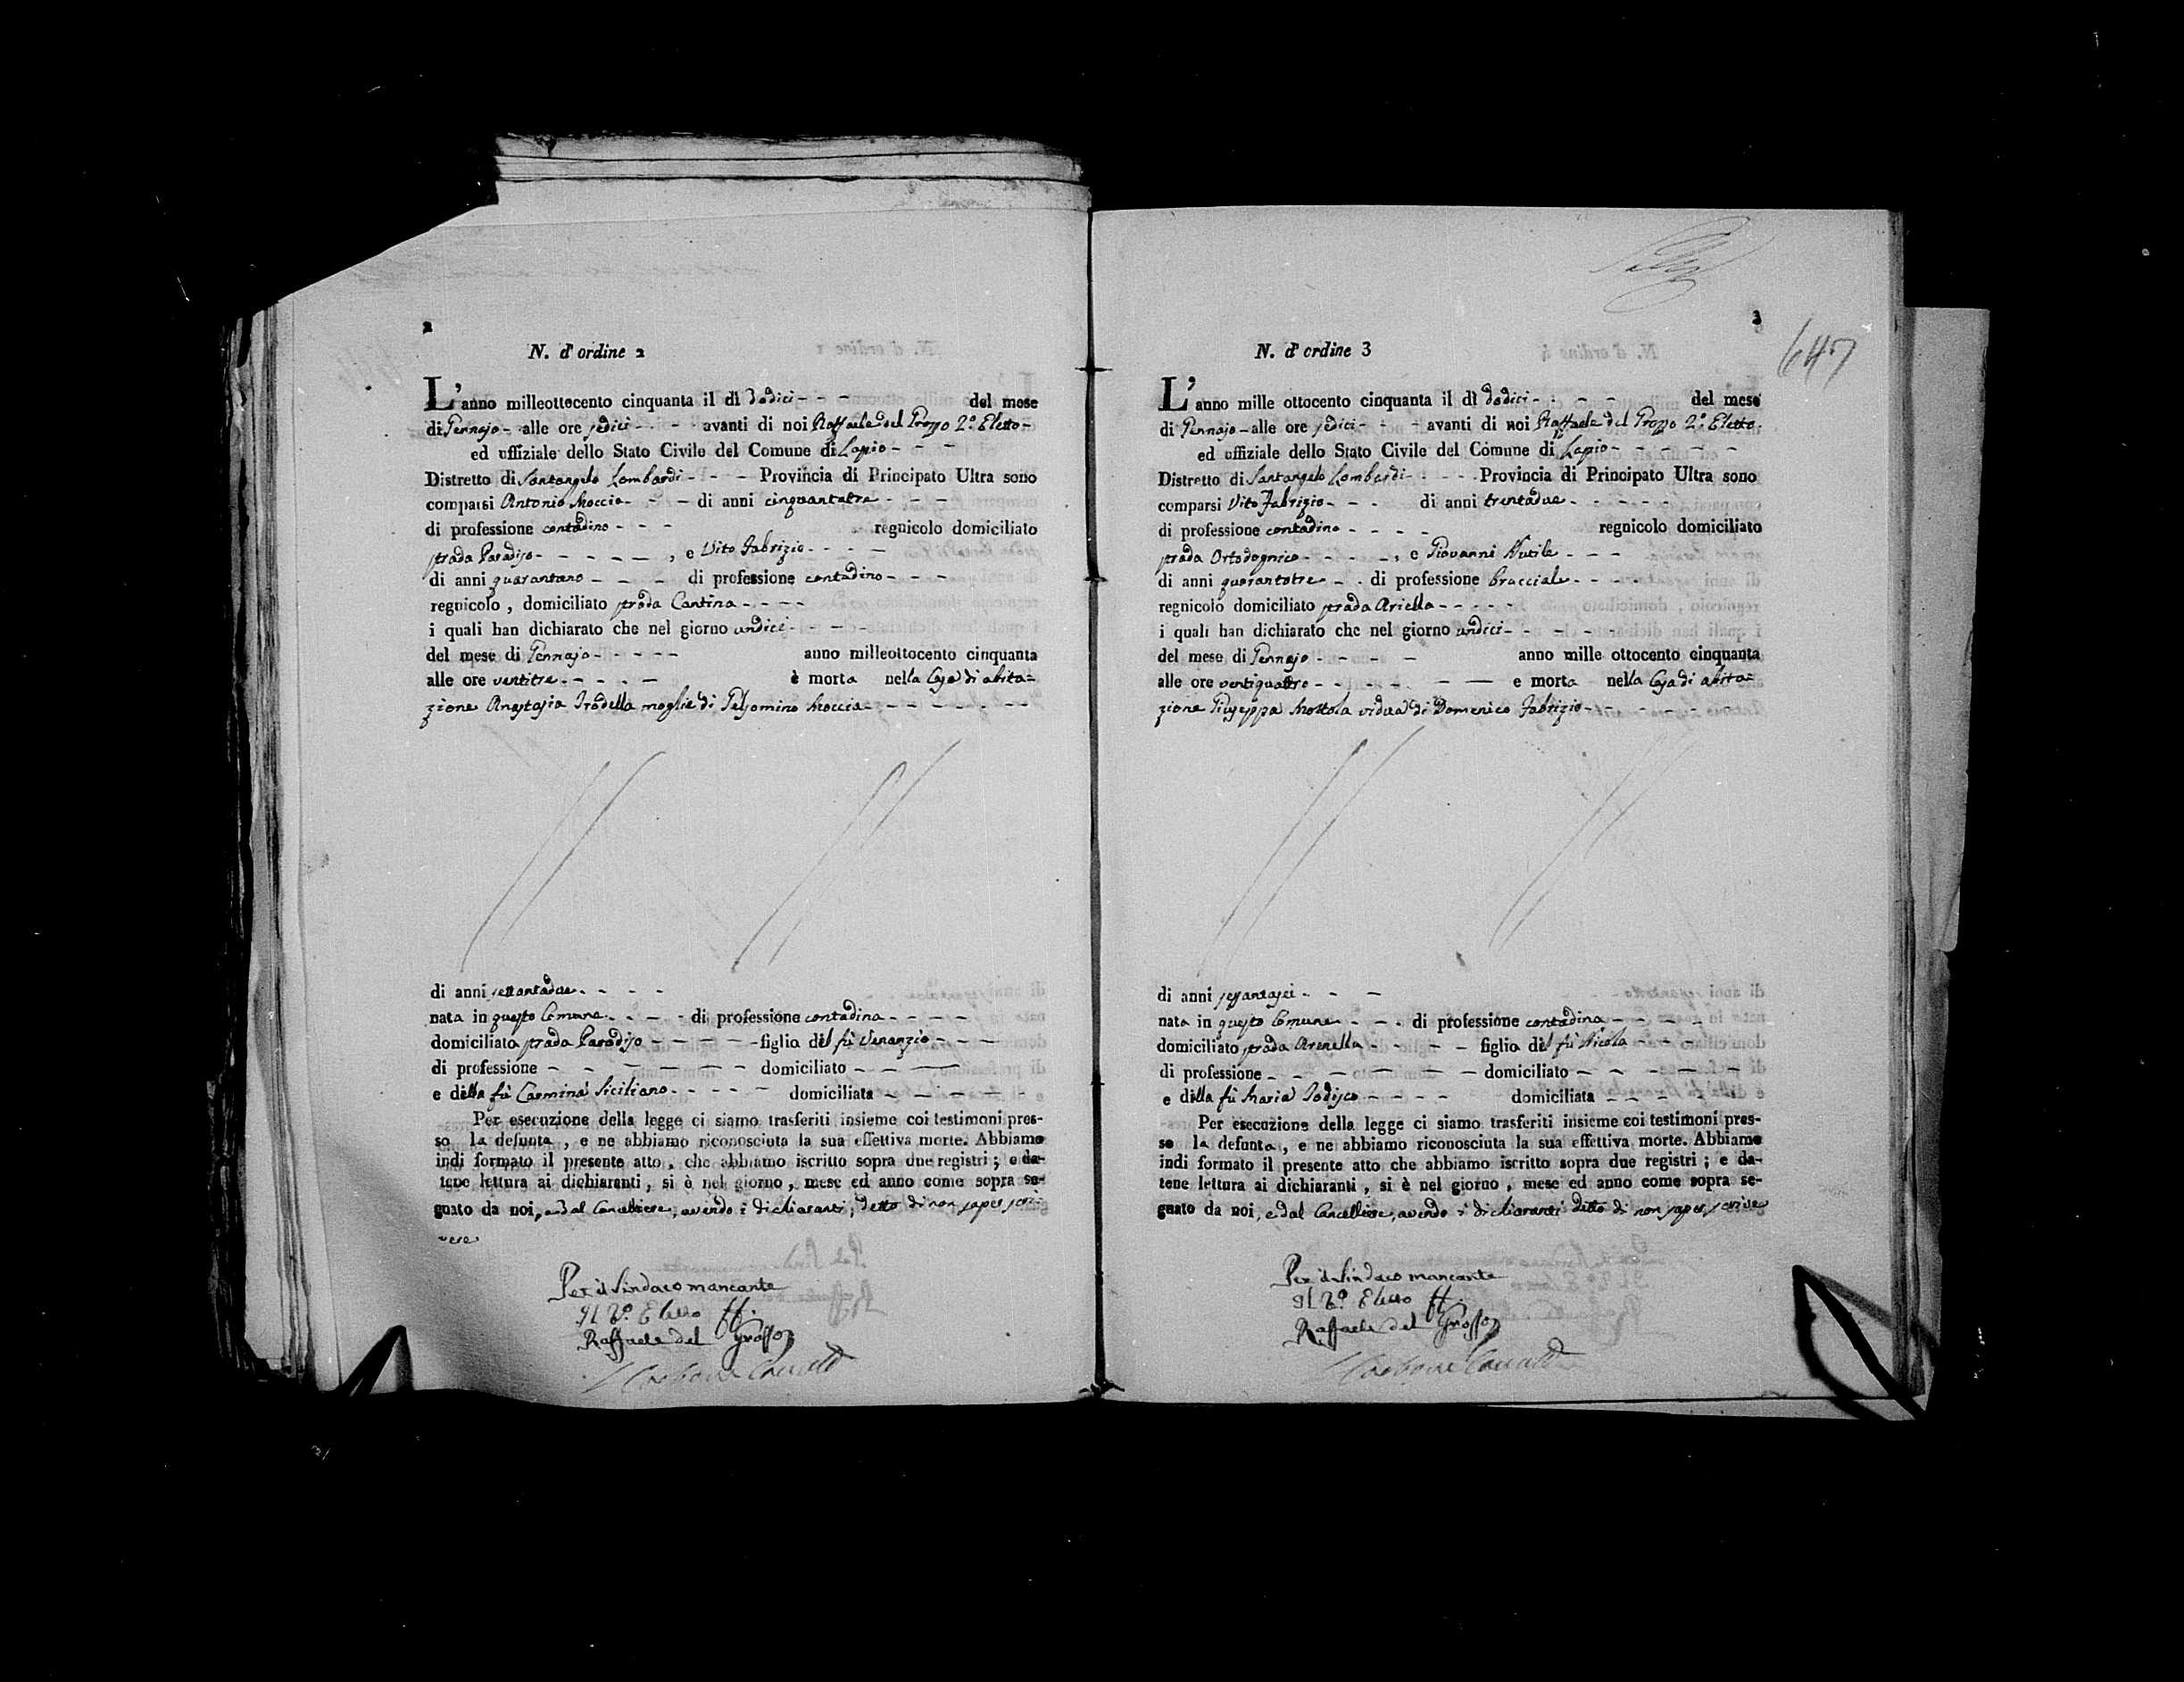 2
N. d' ordine 2
L' anno milleottocento cinquanta il di Dodici - - - del mese
di Gennajo - alle ore sedici - - - avanti di noi Raffaele del Grosso 2.º Eletto -
ed uffiziale dello Stato Civile del Comune di Lapio - - -
Distretto di Santangelo Lombardi - - - Provincia di Principato Ultra sono
comparsi Antonio Moccia - - - di anni cinquantatre - - -
di professione contadino - - - regnicolo domiciliato
strada Paradiso - - - - - , e Vito Fabrizio - - - -
di anni quarantano - - - di professione contadino - - -
regnicolo , domiciliato strada Cantina - - - -
i quali han dichiarato che nel giorno undici - - - -
del mese di Gennajo - - - - - anno milleottocento cinquanta
alle ore ventitre - - - - è morta nella Casa di abita=
zione Anastasia Iradella moglie di Gelsomino Moccia - - - - - - -
di anni settantadue - - - -
nata in questo Comune - - - - di professione contadina - - - -
domiciliata strada Paradiso - - - - - figlia del fù Venanzio - - -
di professione - - - - - - domiciliato - - - -
e della fù Carmina Siciliano - - - - - domiciliata - - - - -
Per esecuzione della legge ci siamo trasferiti insieme coi testimoni pres-
so la defunta , e ne abbiamo riconosciuta la sua effettiva morte. Abbiamo
indi formato il presente atto , che abbiamo iscritto sopra due registri ; e da-
tene lettura ai dichiaranti , si è nel giorno , mese ed anno come sopra se-
gnato da noi, e dal Cancelliere, avendo i dichiaranti, detto di non saper scri-
vere
Per il Sindaco mancante
Il 2º Eletto ff.
Raffaele del Grosso
3
647
N. d' ordine 3
L' anno mille ottocento cinquanta il di dodici - - - - del mese
di Gennajo - alle ore sedici - - - avanti di noi Raffaele del Grosso 2.º Eletto -
ed uffiziale dello Stato Civile del Comune di Lapio - - - - -
Distretto di Santangelo Lombardi - - - - Provincia di Principato Ultra sono
comparsi Vito Fabrizio - - - di anni trentadue - - - - -
di professione contadino - - - - regnicolo domiciliato
strada Ortodognico - - - - - , e Giovanni Nutile - - -
di anni quarantotre - - di professione bracciale - - - -
regnicolo domiciliato strada Ariella - - - - -
i quali han dichiarato che nel giorno undici - - - - -
del mese di Gennajo - - - - anno mille ottocento cinquanta
alle ore ventiquattro - - - - - - - e morta nella Casa di abita=
zione Giuseppa Mottola vidua di Domenico Fabrizio - - - - - -
di anni sessantasei - - -
nata in questo Comune - - - di professione contadina - - - -
domiciliato strada Arenella - - - - - figlia del fù Nicola - - -
di professione - - - - - - domiciliato - - - - -
e della fù Maria Iodisco - - - - domiciliata - - - - -
Per esecuzione della legge ci siamo trasferiti insieme coi testimoni pres-
so la defunta , e ne abbiamo riconosciuta la sua effettiva morte. Abbiamo
indi formato il presente atto che abbiamo iscritto sopra due registri ; e da-
tene lettura ai dichiaranti , si è nel giorno , mese ed anno come sopra se-
gnato da noi, e dal Cancelliere, avendo i dichiaranti detto di non saper scrive
Per il Sindaco mancante
Il 2º Eletto ff.
Raffaele del Grosso